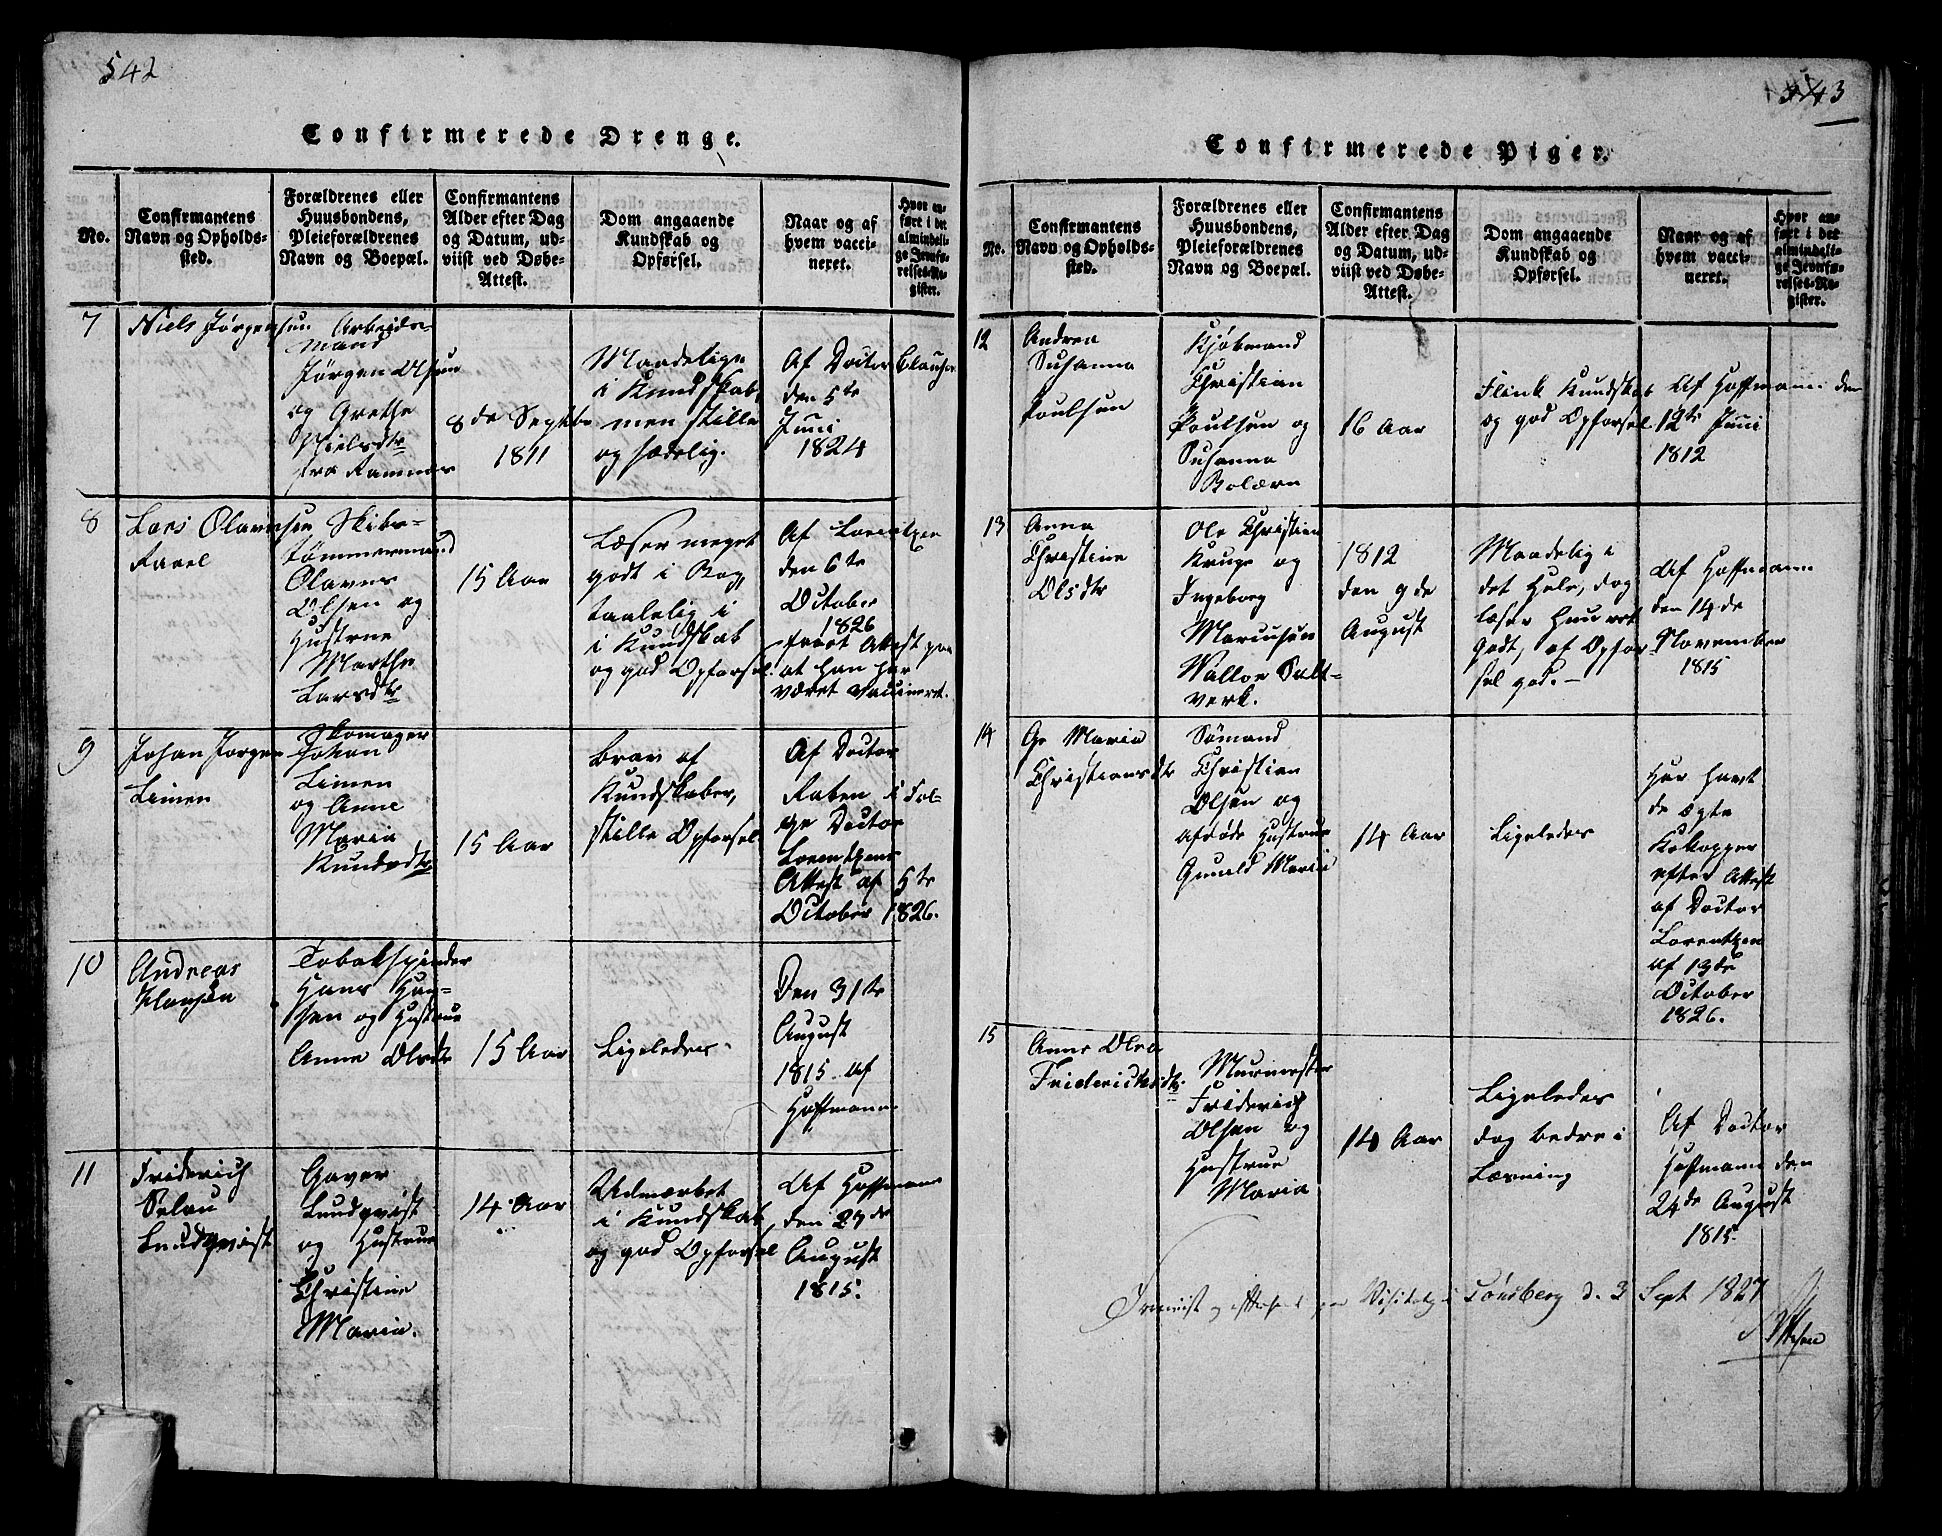 542
Confirmerede Drenge.
No.
Confirmantens
Navn og Opholds-
sted.
Forældrenes eller
Huusbondens,
Pleieforældrenes
Navn og Boepæl.
Confirmantens
Alder efter Dag
og Datum, ud-
viist ved Døbe-
Attest.
Dom angaaende
Kundskab og
Opførsel.
Naar og af
hvem vacci-
neret.
Hvor an-
ført i det
almindeli-
ge Jevnfø-
relses-Re-
gister.
7
Niels Jørgensen
Arbeids-
mand
Jørgen Olsen
og Grethe
Nielsdtr
fra Ramnæs
8de Septbr
1811
Maadelige
i Kundskab,
men stille
og sædelig.
Af Doctor Clausen
den 5te
Juni
1824
8
Lars Olavesen
Favel
Skibs-
tømmermand
Olaves
Olsen og
Hustrue
Marthe
Larsdtr
15 Aar
Læser meget
godt i Bog,
taalelig i
i Kundskab
og god Opførsel
Af Lorentzen
den 6te
October
1826
havt Attest paa
at han har
været vaccineret.
9
Johan Jørgen
Limen
Skomager
Johan
Limen
og Anne
Maria
Knudsdtr
15 Aar
Brav af
Kundskaber,
stille Opførsel
Af Doctor
Raben i Føl-
ge Doctor
Lorentzens
Attest af 5te
October 1826.
10
Andreas
Hansen
Tobakspinder
Hans Han-
sen og Hustrue
Anne Olsdtr
15 Aar
Ligeledes.
Den 31te
August
1815. af
Hoffmann
11
Friderich
Selau
Lundqvist
Gaver
Lundqvist
og Hustrue
Christine
Maria.
14 Aar
Udmærket
i Kundskab,
og god Opførsel
Af Hoffmann
den 27de
August
1815.
543
Confirmerede Piger.
No.
Confirmantens
Navn og Opholds-
sted.
Forældrenes eller
Huusbondens,
Pleieforældrenes
Navn og Boepæl.
Confirmantens
Alder efter Dag
og Datum, ud-
viist ved Døbe-
Attest.
Dom angaaende
Kundskab og
Opførsel.
Naar og af
hvem vacci-
neret.
Hvor an-
ført i det
almindeli-
ge Jevnfø-
relses-Re-
gister.
12
Andrea
Susanna
Poulsen
Kjøbmand
Christian
Poulsen og
Susanna
Bolærn
16 Aar
Flink Kundskab
og god Opførsel
Af Hoffmann den
12te Juni
1812
13
Anna
Christine
Olsdtr
Ole Christian
Kruge og
Ingeborg
Marcusen
Valløe Salt-
verk.
1812
den 9de
August
Maadelig i
det Hele, dog
læser hun ret
godt, af Opfør-
sel god. -
Af Hoffmann
den 14de
November
1815
14
Ge Maria
Christiansdtr
Sømand
Christian
Olsen og
afdøde Hustrue
Gunild Maria
14 Aar
Ligeledes
Har havt
de ægte
Kokopper
efter Attest
af Doctor
Lorentzen
af 19de
October
1826.
15
Anne Olea
Friderichsdtr.
Murmester
Friderich
Olsen og
Hustrue
Maria
14 Aar
Ligeledes
dog bedre i
Læsning
Af Doctor
Hoffmann den
24de August
1815.
Visitatz i Tønsberg d. 3 Sept 1827